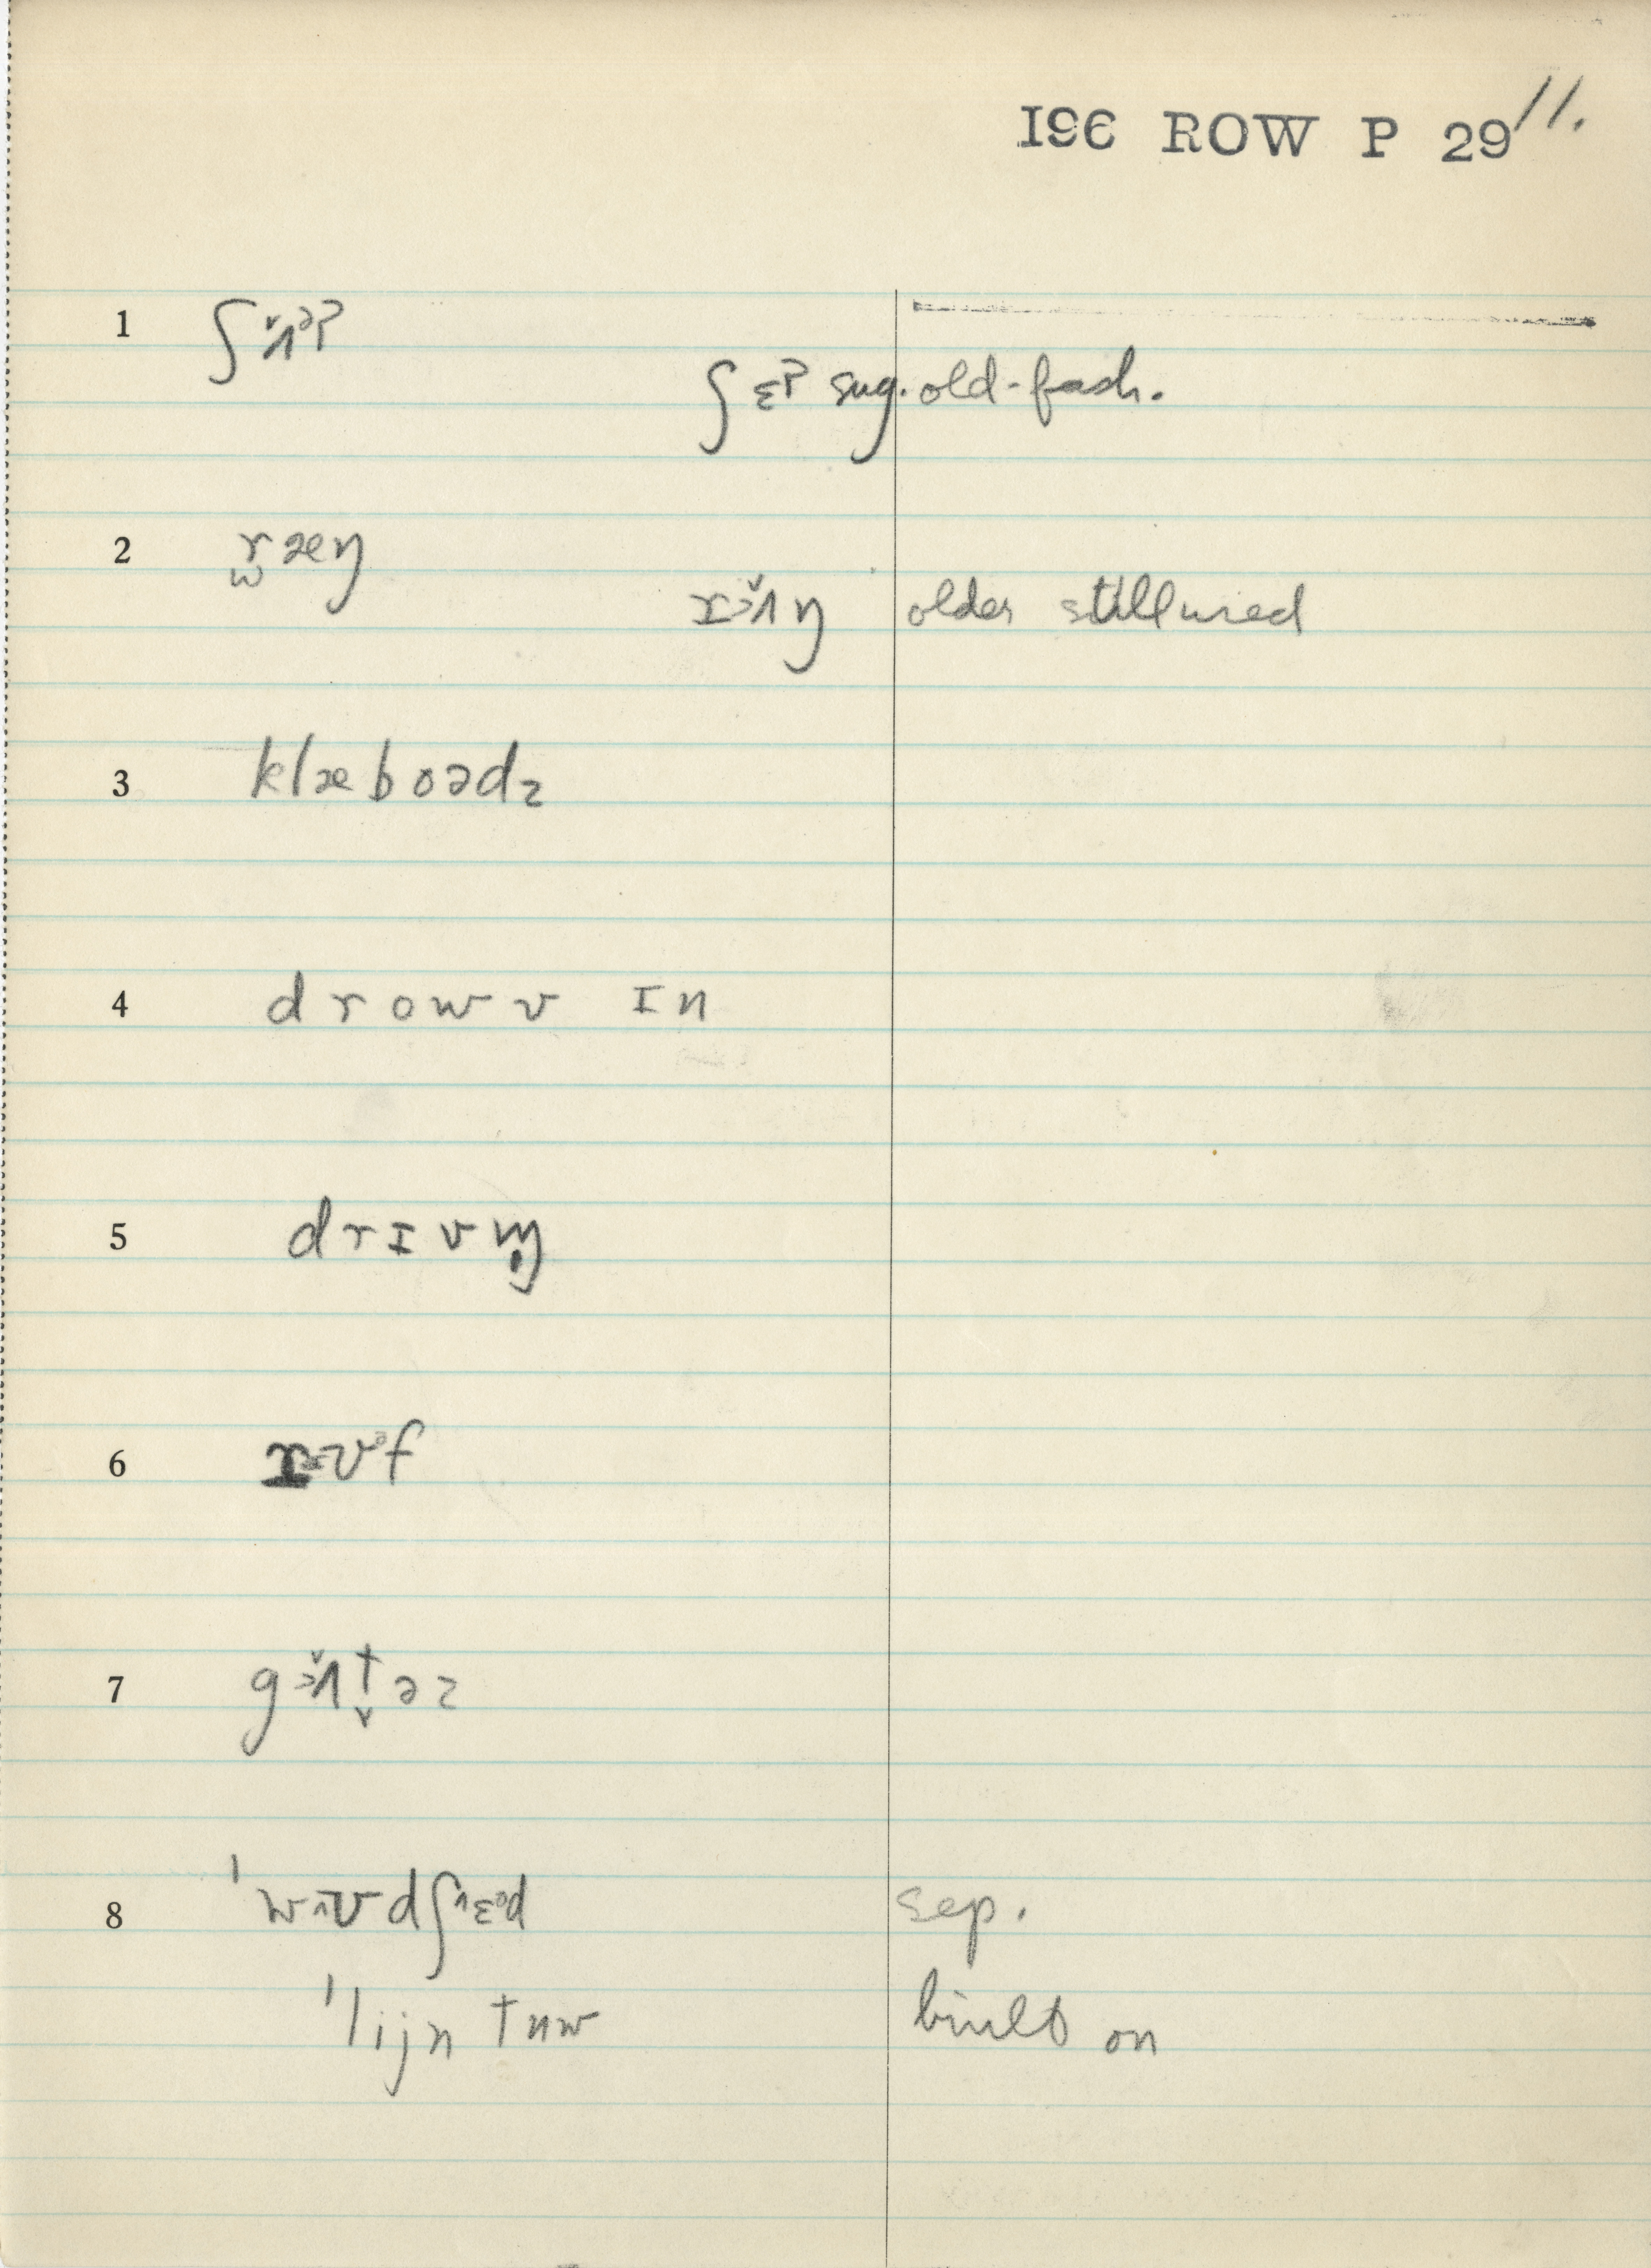 196 ROW P 29 11.
1 ʃʌ̌ᵊt
ʃɛt sug. old-fash.
2 ræŋ
rʌ̌ŋ older still used
3 klæboədz
4 drowv ɪn
5 drɪvɪŋ
6 rʊᵊf
7 gʌ̌t̬əz
8 ˈwʊdʃɛᵊd sep.
ˈlijn tuw built on